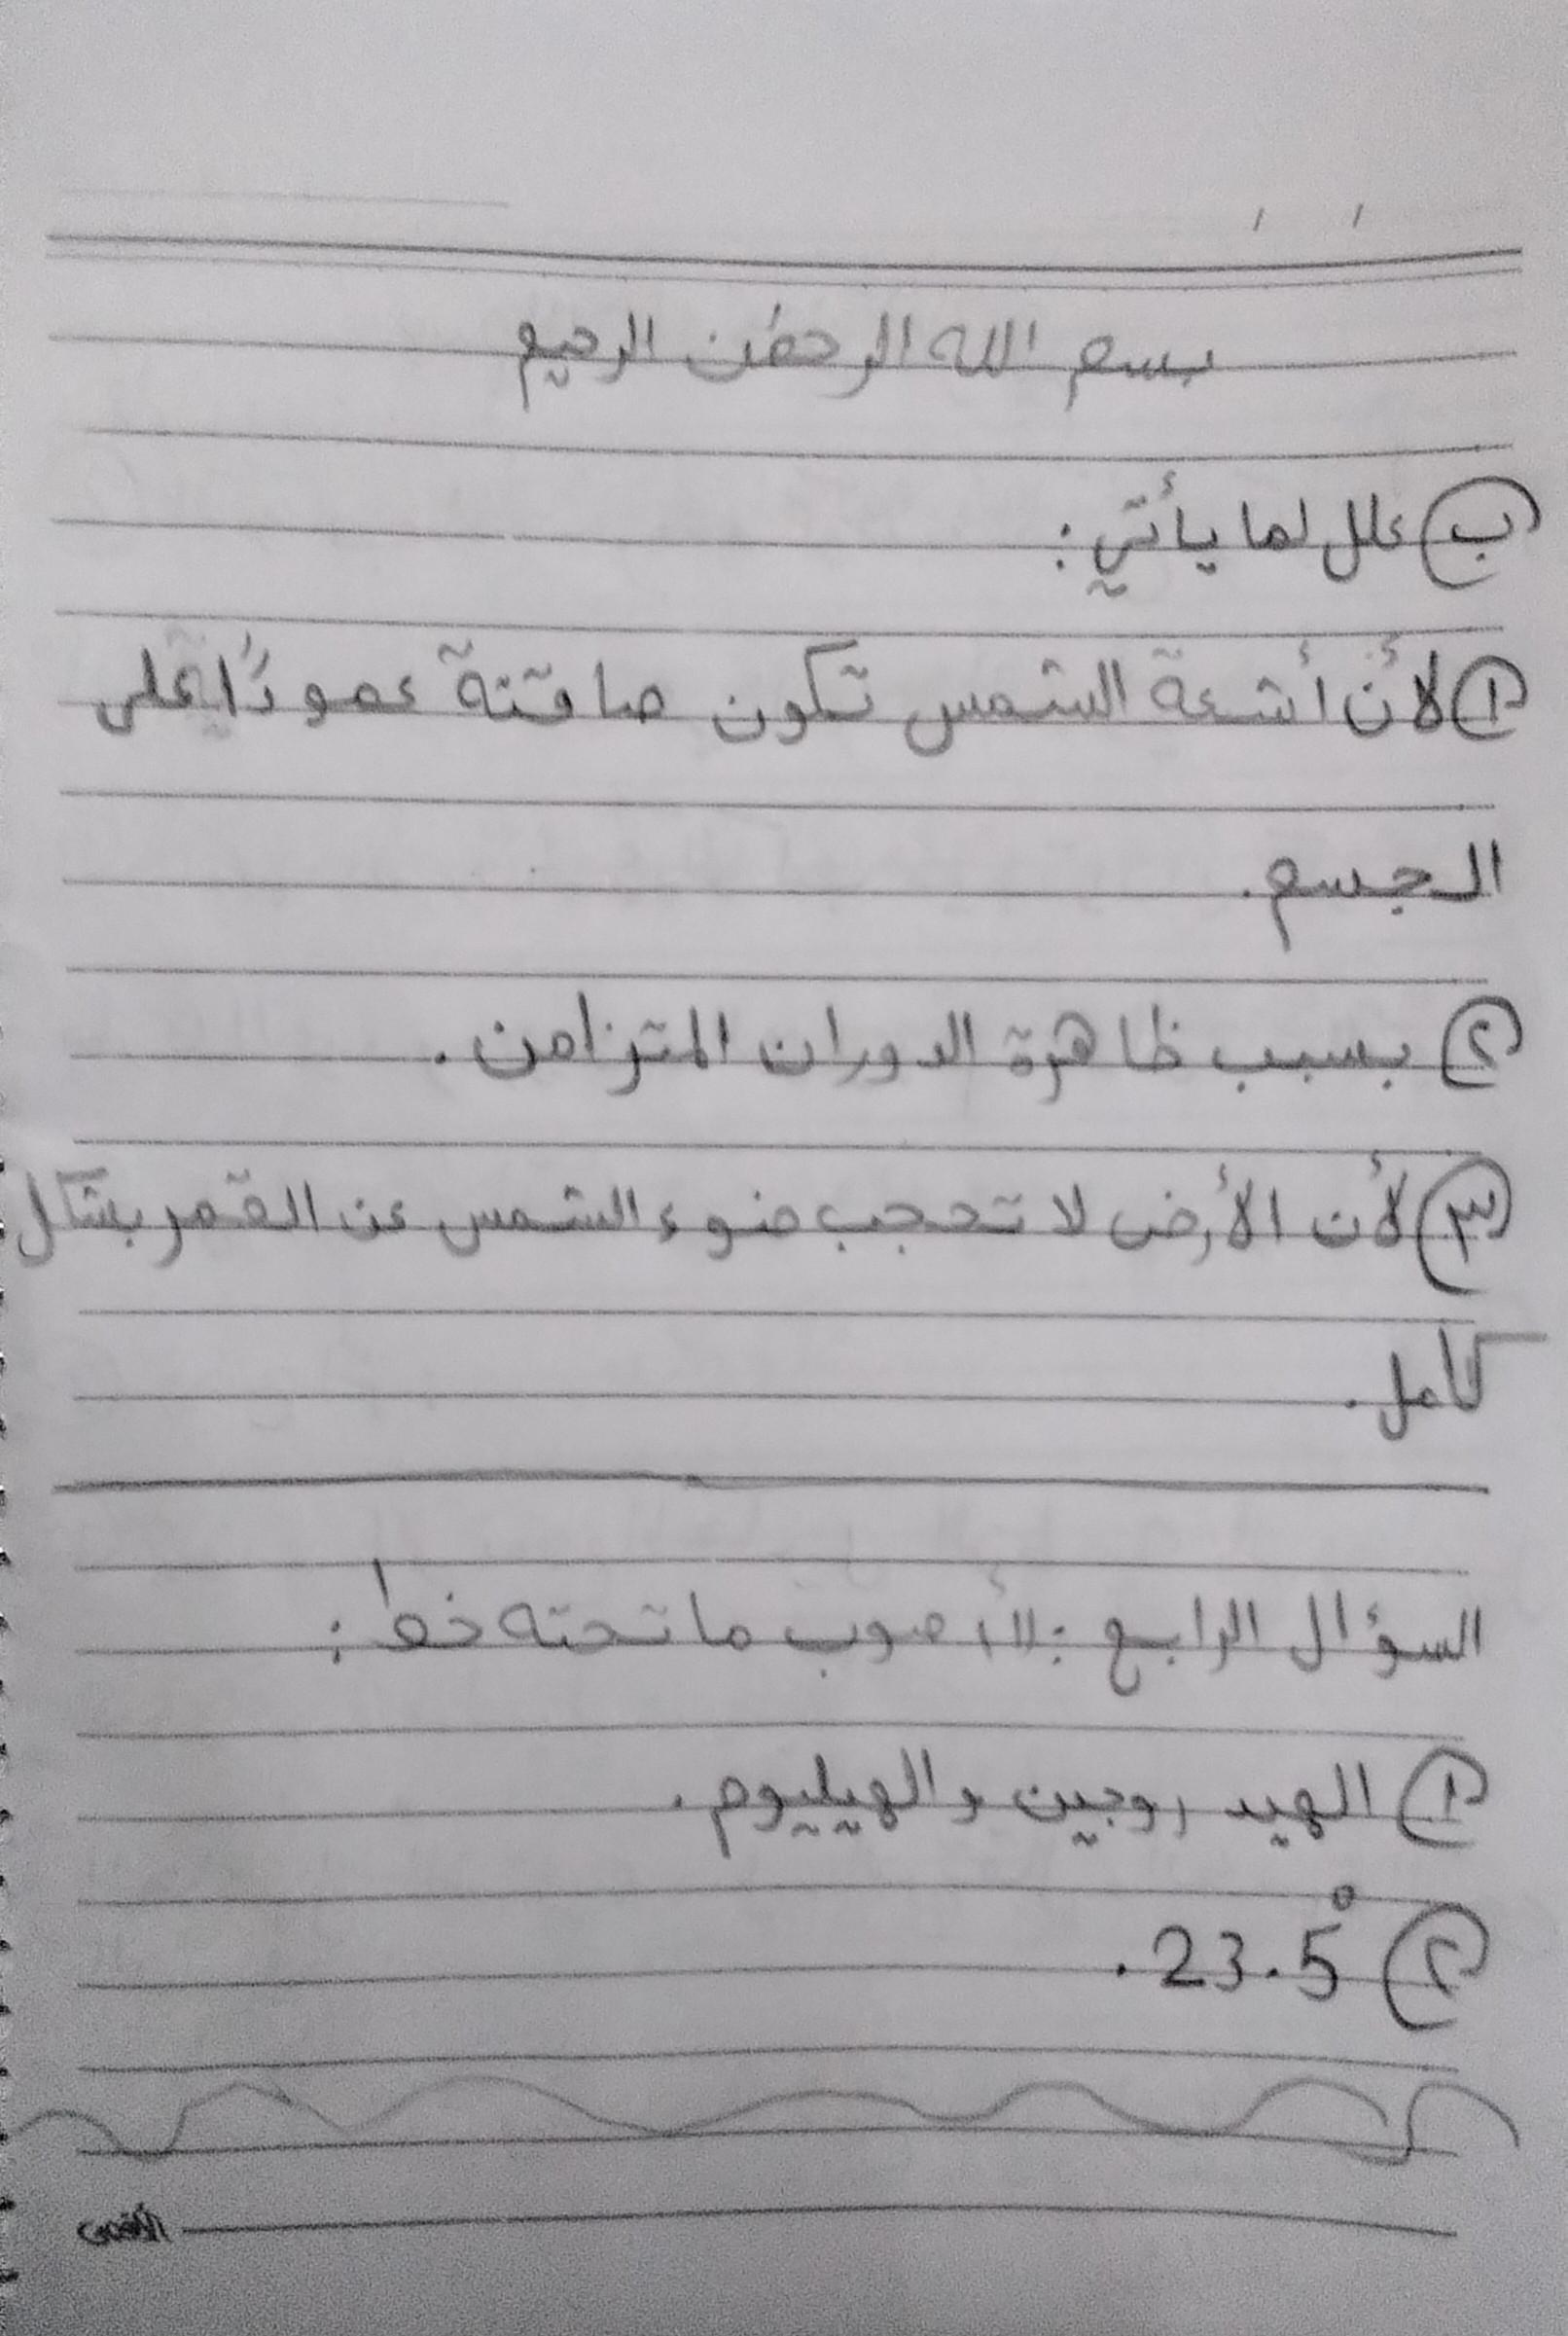 بسم الله الرحمٰن الرحيم
ب علل لما يأتي :
١ لأن أشعة الشمس تكون صاقتة عمودًا على
الجسم .
٢ بسبب ظاهرة الدوران المتزامن .
٣ لأن الأرض لا تحجب ضوء الشمس عن القمر بشكل
كامل .
السؤال الرابع : أصوب ما تحته خط :
١ الهيدروجين والهيليوم .
٢ 23.5° .
الأقصى